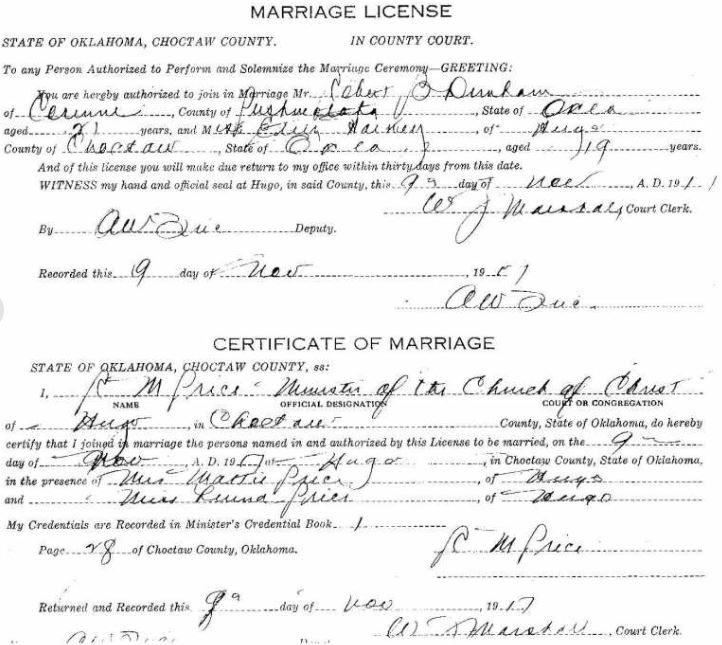 MARRIAGE LICENSE
STATE OF OKLAHOMA, CHOCTAW COUNTY. IN COUNTY COURT.
To any Person Authorized to Perform and Solemnize the Marriage Ceremony—GREETING:
You are hereby authorized to join in Marriage Mr. B Dunham
of Corinne, County of Pushmataha, State of Okla
aged 21 years, and Miss of Hugo
County of Choctaw, State of Okla, aged 19 years.
And of this license you will make due return to my office within thirty days from this date.
WITNESS my hand and official seal at Hugo, in said County, this 9 day of Nov A. D. 191
W J Marshall, Court Clerk.
By AW Deputy.
Recorded this 9 day of Nov, 19
AW
CERTIFICATE OF MARRIAGE
STATE OF OKLAHOMA, CHOCTAW COUNTY, ss:
I, M Price Minister of the Church of Christ
NAME OFFICIAL DESIGNATION COURT OR CONGREGATION
of Hugo in Choctaw County, State of Oklahoma, do hereby
certify that I joined in marriage the persons named in and authorized by this License to be married, on the 9
day of Nov A. D. 191 at Hugo, in Choctaw County, State of Oklahoma,
in the presence of Mrs Mattie Price, of Hugo
and Miss Price, of Hugo
My Credentials are Recorded in Minister's Credential Book 1
Page 28 of Choctaw County, Oklahoma.
M Price
Returned and Recorded this 9 day of Nov 1917
W J Marshall, Court Clerk.